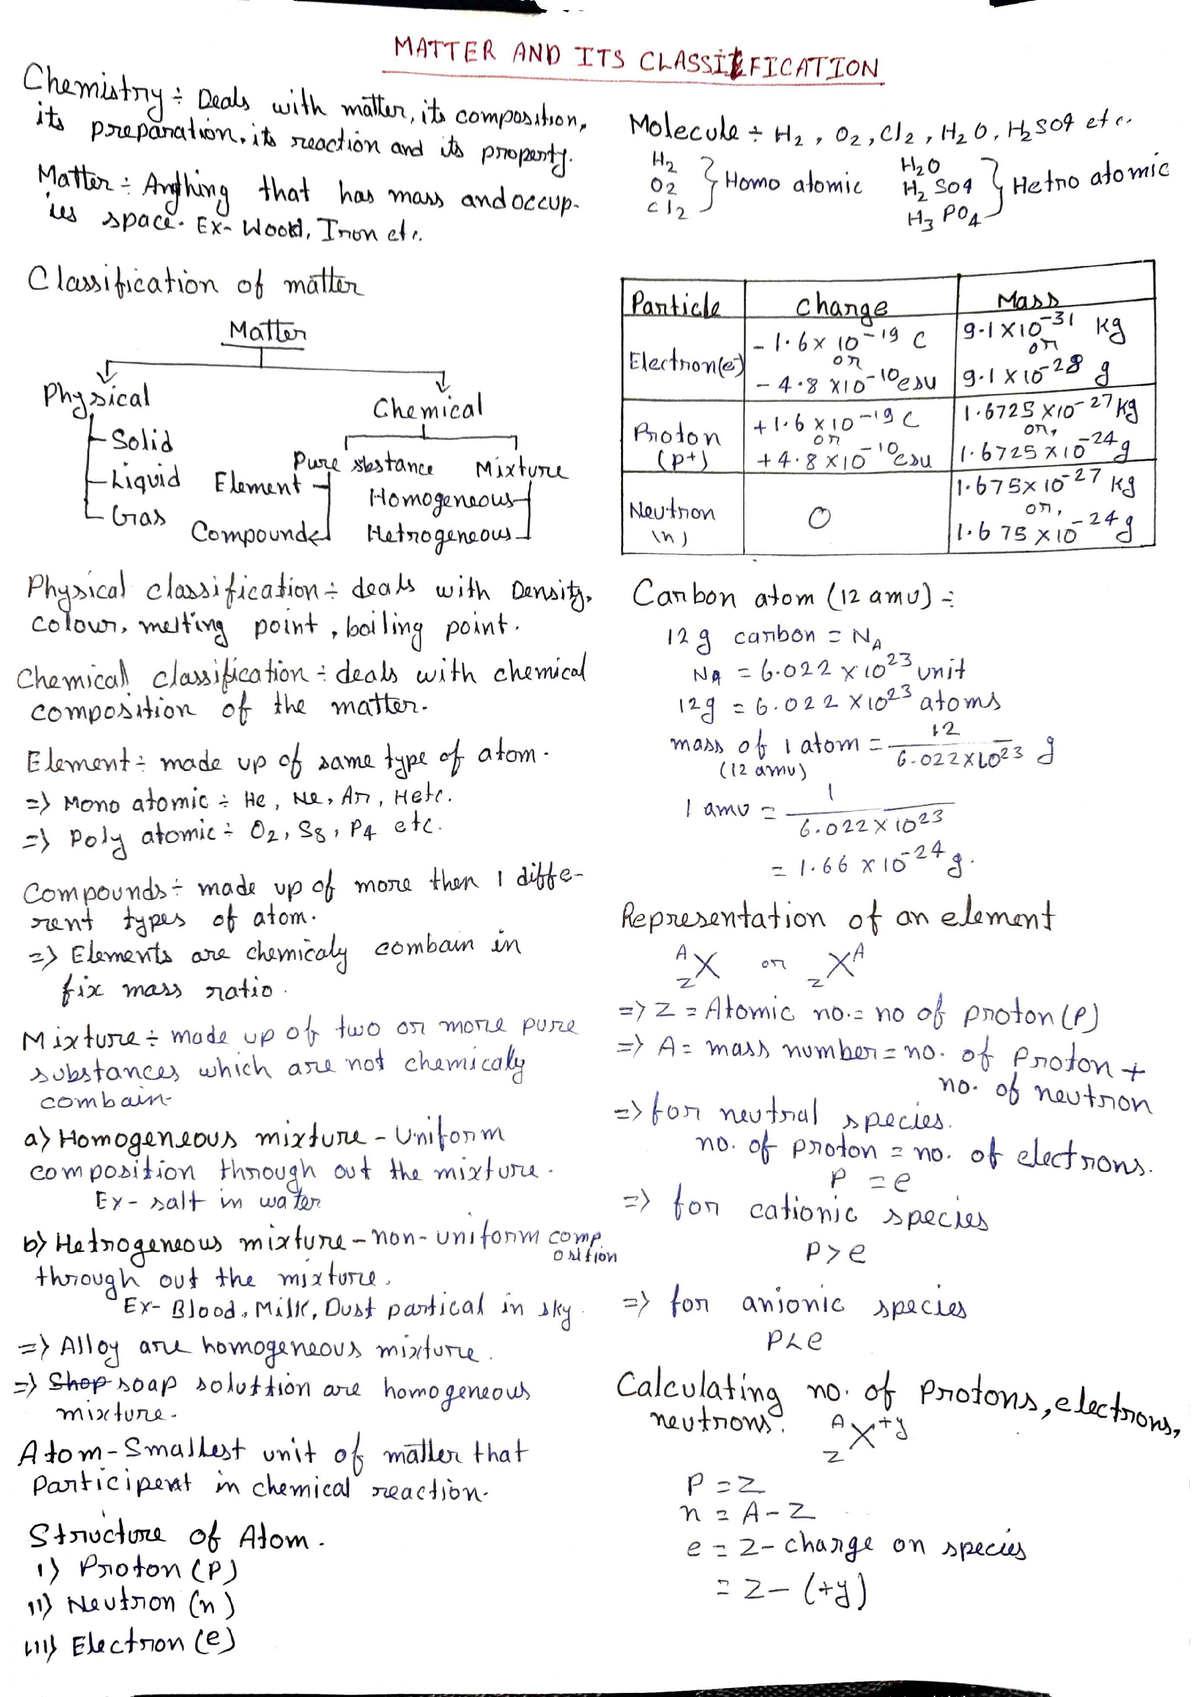 MATTER AND ITS CLASSIFICATION
Chemistry ÷ Deals with matter, its composition,
its preparation, its reaction and its property.
Matter ÷ Anything that has mass and occup-
ies space. Ex- Wood, Iron etc.
Classification of matter
Matter
Physical
Chemical
Solid
Liquid
Gas
Pure sbstance
Mixture
Element
Compounded
Homogeneous
Hetrogeneous
Physical classification ÷ deals with Density,
colour, melting point, boiling point.
Chemical classification ÷ deals with chemical
composition of the matter.
Element ÷ made up of same type of atom.
=> Mono atomic ÷ He, Ne, Ar, Hetc.
=> Poly atomic ÷ O2, S8, P4 etc.
Compounds ÷ made up of more then 1 diffe-
rent types of atom.
=> Elements are chemicaly combain in
fix mass ratio.
Mixture ÷ made up of two or more pure
substances which are not chemicaly
combain.
a) Homogeneous mixture - Uniform
composition through out the mixture.
Ex - salt in water
b) Hetrogeneous mixture - non-uniform comp
osition
through out the mixture.
Ex- Blood, Milk, Dust partical in sky.
=> Alloy are homogeneous mixture.
=> Shop soap soluttion are homogeneous
mixture.
Atom - Smallest unit of matter that
Participent in chemical reaction.
Structure of Atom.
i) Proton (P)
ii) Neutron (n)
iii) Electron (e)
Molecule ÷ H2, O2, Cl2, H2O, H2SO4 etc.
H2
O2
Cl2
Homo atomic
H2O
H2SO4
H3PO4
Hetro atomic
Particle Charge Mass
Electron(e-) -1.6 × 10^-19 C or -4.8 × 10^-10 esu 9.1 × 10^-31 kg or 9.1 × 10^-28 g
Proton (p+) +1.6 × 10^-19 C or +4.8 × 10^-10 esu 1.6725 × 10^-27 kg or, 1.6725 × 10^-24 g
Neutron (n) 0 1.675 × 10^-27 kg or, 1.675 × 10^-24 g
Carbon atom (12 amu) ÷
12 g carbon = NA
NA = 6.022 × 10^23 unit
12g = 6.022 × 10^23 atoms
mass of 1 atom = 12 / 6.022×10^23 g
(12 amu)
1 amu = 1 / 6.022 × 10^23
= 1.66 × 10^-24 g.
Representation of an element
A Z X or Z X A
=> Z = Atomic no. = no of proton (P)
=> A = mass number = no. of Proton +
no. of neutron
=> for neutral species.
no. of proton = no. of electrons.
P = e
=> for cationic species
P > e
=> for anionic species
P < e
Calculating no. of Protons, electrons,
neutrons. A Z X +y
P = Z
n = A - Z
e = Z - charge on species
= Z - (+y)